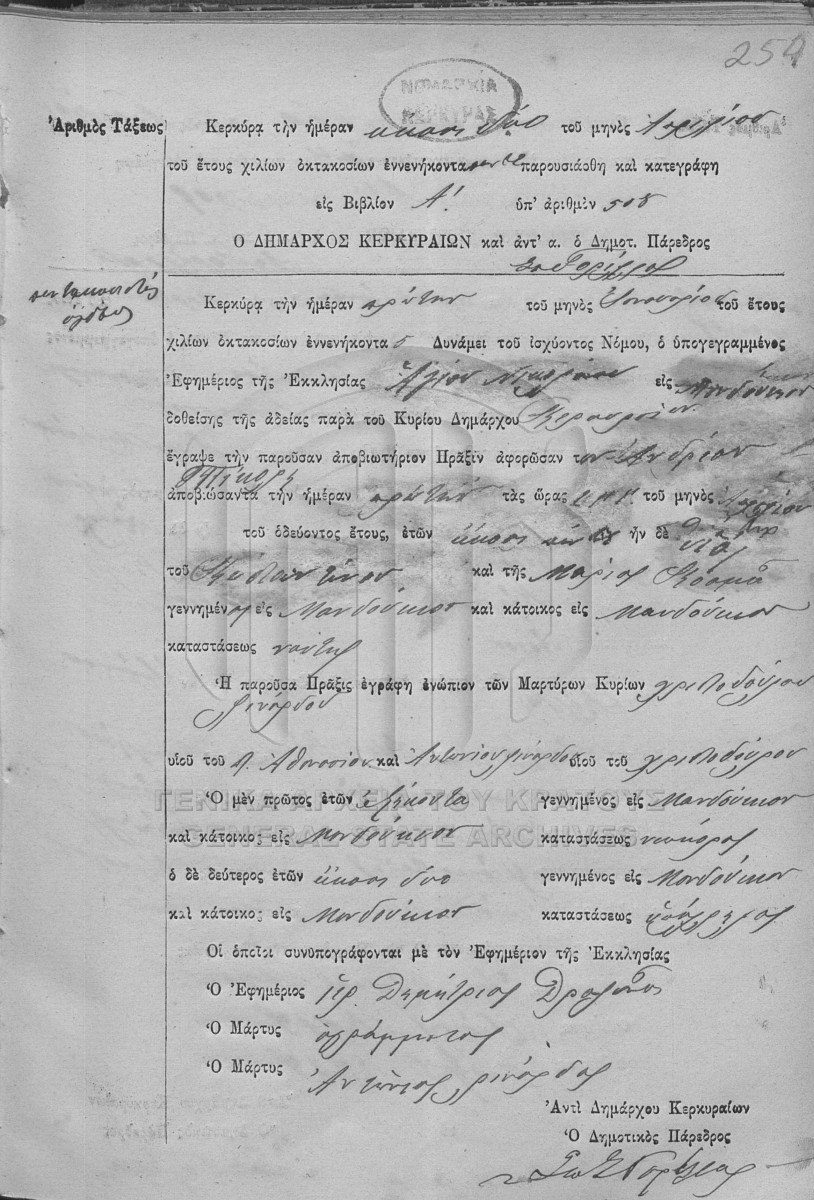 254
ΝΟΜΑΡΧΙΑ
ΚΕΡΚΥΡΑΣ
Ἀριθμὸς Τάξεως
Κερκύρᾳ τὴν ἡμέραν εἴκοσι δύο τοῦ μηνὸς Ἀπριλίου
τοῦ ἔτους χιλίων ὀκτακοσίων ἐννενήκοντα πέντε παρουσιάσθη καὶ κατεγράφη
εἰς Βιβλίον Α! ὑπ' ἀριθμὸν 508
Ο ΔΗΜΑΡΧΟΣ ΚΕΡΚΥΡΑΙΩΝ καὶ ἀντ' α. ὁ Δημοτ. Πάρεδρος
πεντακοσιοστὸς
ὄγδοος
Κερκύρᾳ τὴν ἡμέραν πρώτην τοῦ μηνὸς τοῦ ἔτους
χιλίων ὀκτακοσίων ἐννενήκοντα 5 Δυνάμει τοῦ ἰσχύοντος Νόμου, ὁ ὑπογεγραμμένος
Ἐφημέριος τῆς Ἐκκλησίας Ἁγίου Νικολάου εἰς Μανδούκιον
δοθείσης τῆς ἀδείας παρὰ τοῦ Κυρίου Δημάρχου Κερκυραίων
ἔγραψε τὴν παροῦσαν ἀποβιωτήριον Πρᾶξιν ἀφορῶσαν τον Ἀνδρέαν
ἀποβιώσαντα τὴν ἡμέραν πρώτην τὰς ὥρας τοῦ μηνὸς
τοῦ ὁδεύοντος ἔτους, ἐτῶν εἴκοσι πέντε ἦν δὲ υἱὸς
τοῦ Κωσταντίνου καὶ τῆς Μαρίας Κοσμᾶ
γεννημένος εἰς Μανδούκιον καὶ κάτοικος εἰς Μανδούκιον
καταστάσεως ναύτης
Ἡ παροῦσα Πρᾶξις ἐγράφη ἐνώπιον τῶν Μαρτύρων Κυρίων Χριστοδούλου
Ρινάρδου
υἱοῦ τοῦ π. Ἀθανασίου καὶ Ἀντωνίου Ρινάρδου υἱοῦ τοῦ Χριστοδούλου
Ὁ μὲν πρῶτος ἐτῶν ἑξήκοντα γεννημένος εἰς Μανδούκιον
καὶ κάτοικος εἰς Μανδούκιον καταστάσεως νεωκόρος
ὁ δὲ δεύτερος ἐτῶν εἴκοσι δύο γεννημένος εἰς Μανδούκιον
καὶ κάτοικος εἰς Μανδούκιον καταστάσεως
Οἱ ὁποῖοι συνυπογράφονται μὲ τὸν Ἐφημέριον τῆς Ἐκκλησίας
Ὁ Ἐφημέριος ἱερ. Δημήτριος
Ὁ Μάρτυς ἀγράμματος
Ὁ Μάρτυς Ἀντώνιος Ρινάρδος
Ἀντὶ Δημάρχου Κερκυραίων
Ὁ Δημοτικὸς Πάρεδρος
ΓΕΝΙΚΑ ΑΡΧΕΙΑ ΤΟΥ ΚΡΑΤΟΥΣ
GENERAL STATE ARCHIVES